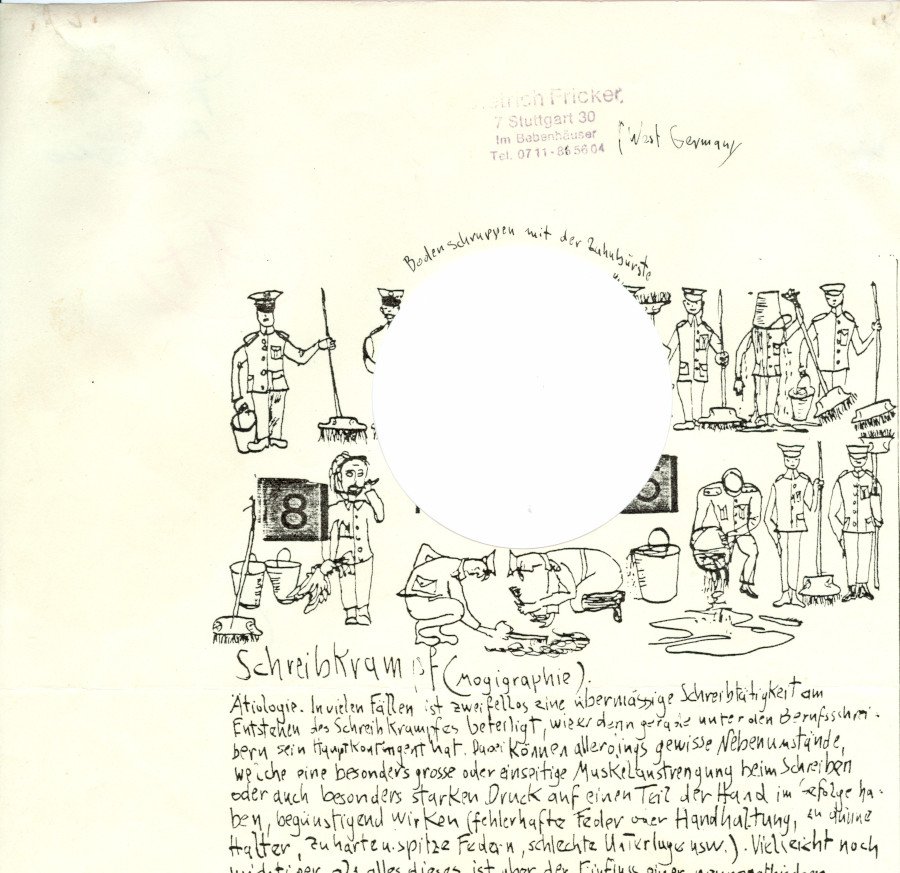 Fricker,
7 Stuttgart 30
Im Babenhäuser
Tel. 0711-865604
West Germany
Bodenschruppen mit der Zahnbürste
8
Schreibkrampf (Mogigraphie).
Ätiologie. In vielen Fällen ist zweifellos eine übermässige Schreibtätigkeit am
Entstehen des Schreibkrampfes beteiligt, wie er denn gerade unter den Berufsschrei-
bern sein Hauptkontingent hat. Dabei können allerdings gewisse Nebenumstände,
welche eine besonders grosse oder einseitige Muskelanstrengung beim Schreiben
oder auch besonders starken Druck auf einen Teil der Hand im Gefolge ha-
ben, begünstigend wirken (fehlerhafte Feder oder Handhaltung, zu dünne
Halter, zu harte u. spitze Federn, schlechte Unterlage usw.). Vielleicht noch
wichtiger als alles dieses ist aber der Einfluss einer